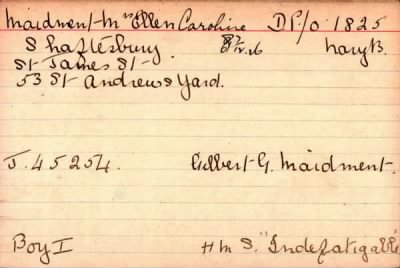 Maidment Mrs Ellen Caroline D.P./o 1825
Shaftesbury Navy B.
St James St
53 St Andrews Yard.
J. 45254. Gilbert G. Maidment.
Boy I H M S. "Indefatigable"